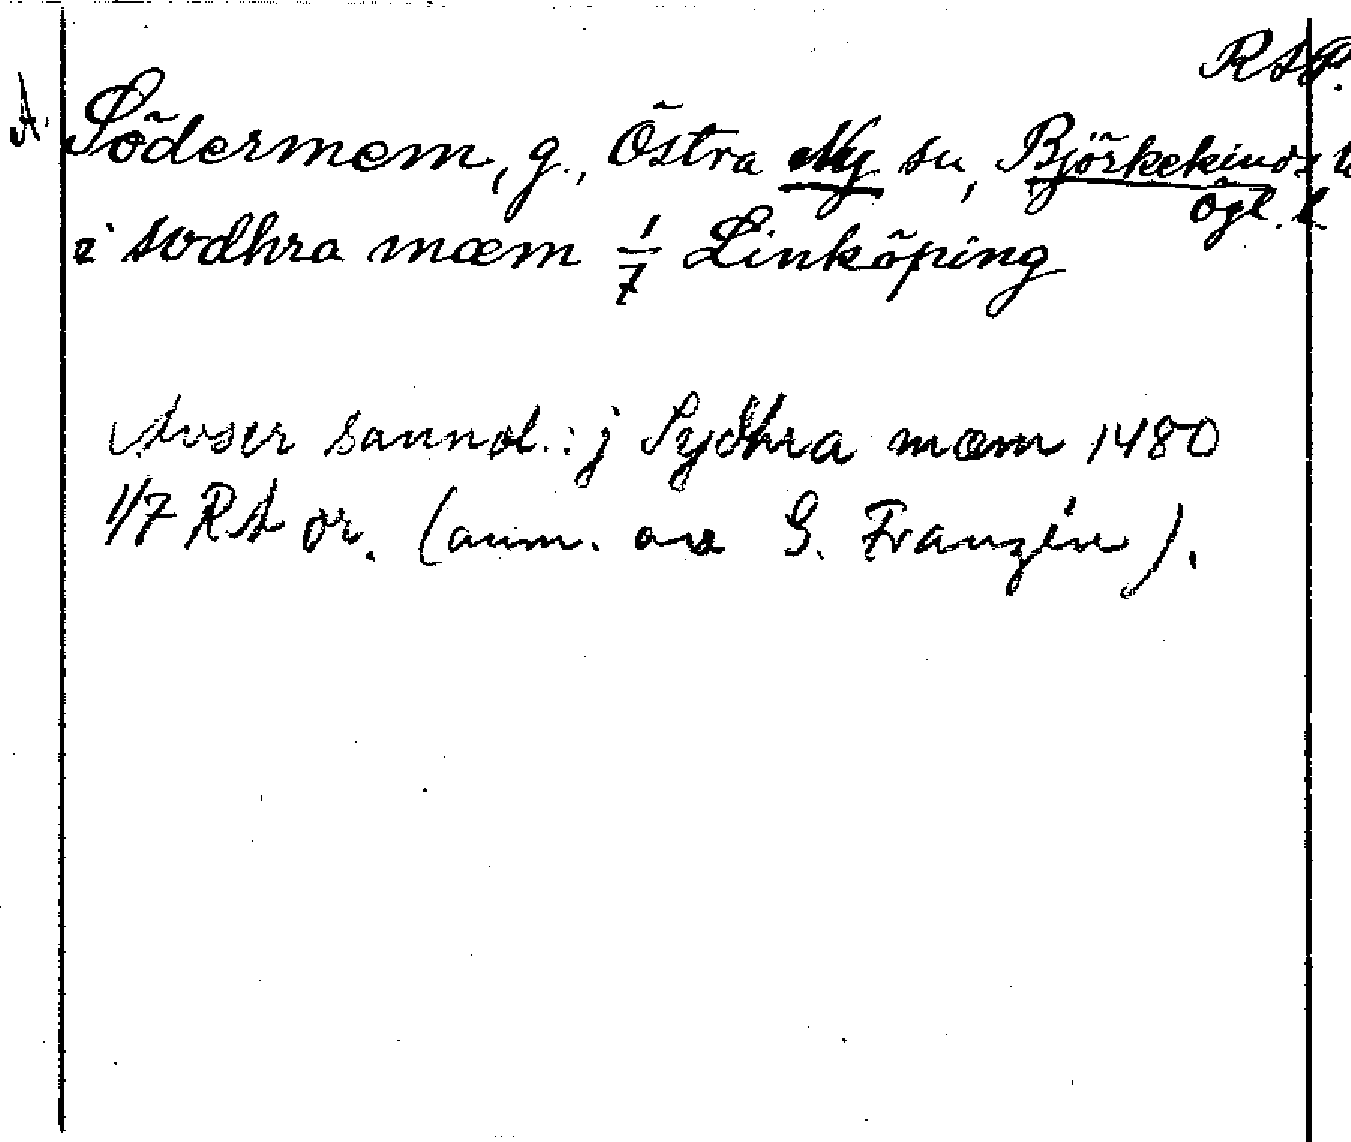 RAP.
A. Södermem, g., Östra Ny sn, Björkekinds h
Ögl. l.
i swdhra mæm 1/7 Linköping
Avser sannol.: j Sydhra mæm 1480
1/7 RA or. (anm. av G. Franzén).